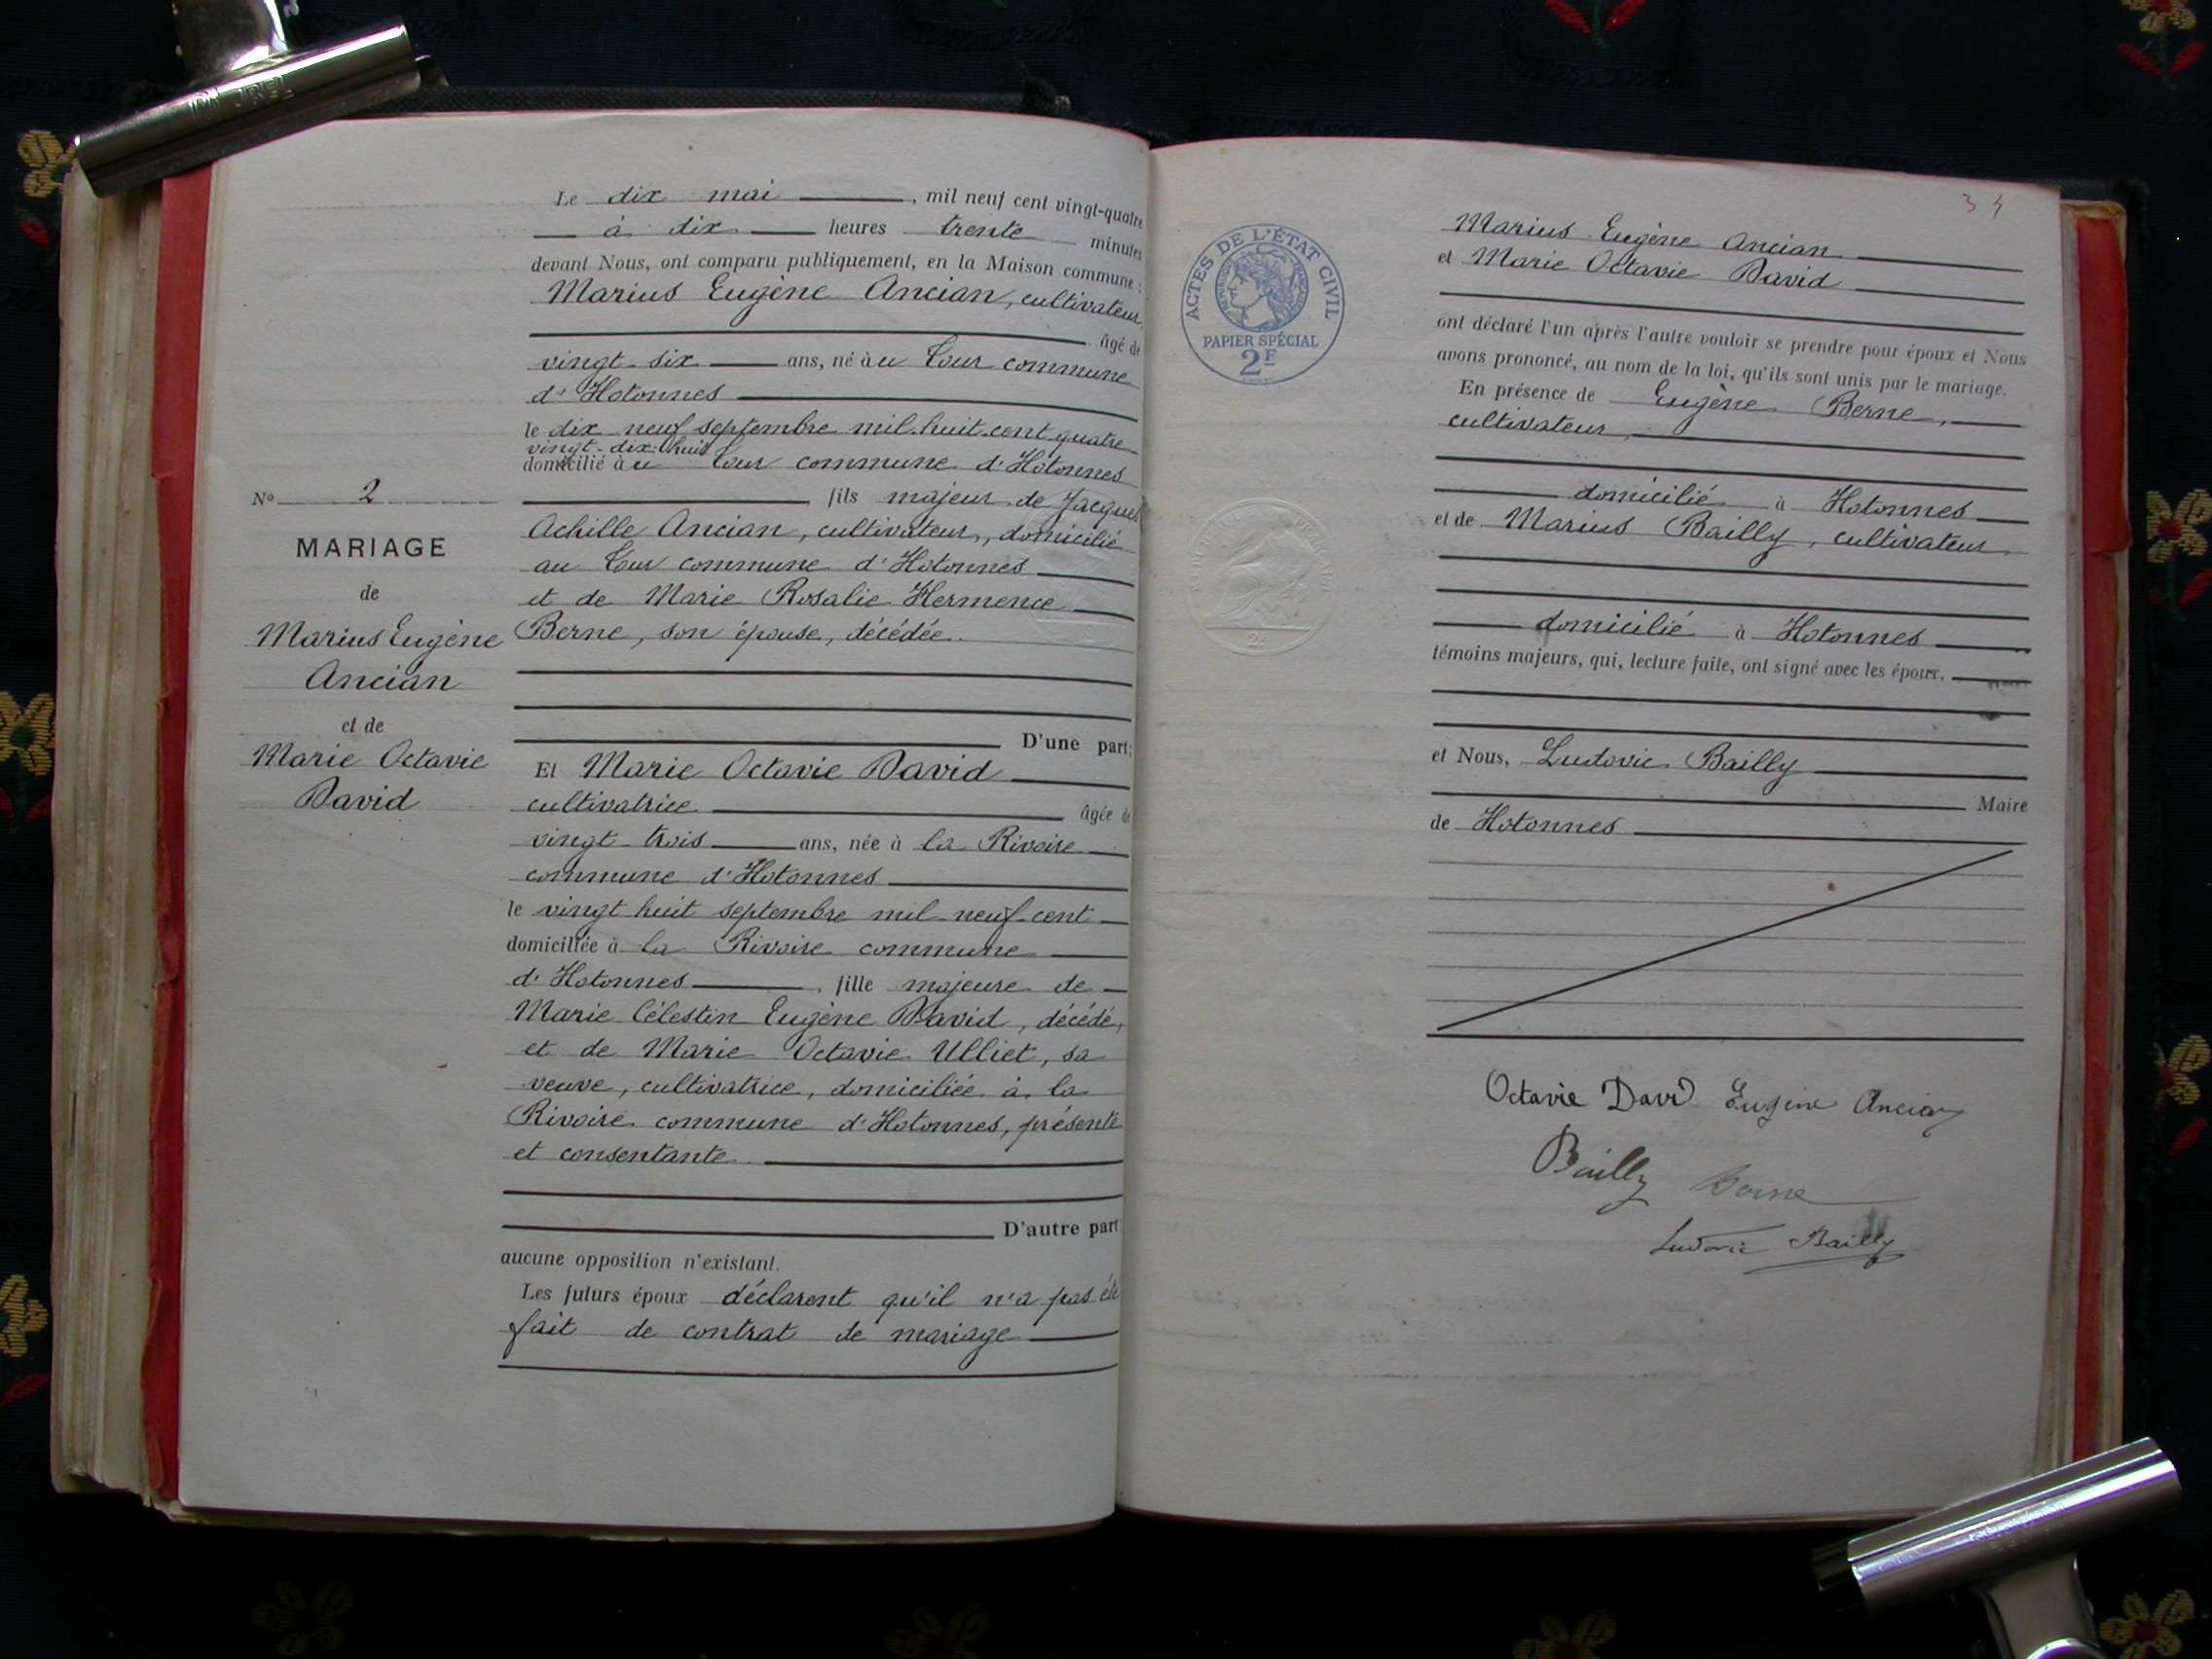 Le dix mai, mil neuf cent vingt-quatre
à dix heures trente minutes
devant Nous, ont comparu publiquement, en la Maison commune :
Marius Eugène Ancian, cultivateur,
âgé de
vingt-six ans, né àu Tour commune
d'Hotonnes
le dix neuf septembre mil-huit-cent quatre
vingt-dix-huit
domicilié àu Tour commune d'Hotonnes
fils majeur de Jacques
Achille Ancian, cultivateur, domicilié
au Tour commune d'Hotonnes
et de Marie Rosalie Hermence
Berne, son épouse, décédée.
D'une part;
Et Marie Octavie David
cultivatrice âgée de
vingt-trois ans, née à la Rivoire
commune d'Hotonnes
le vingt huit septembre mil-neuf-cent
domiciliée à la Rivoire commune
d'Hotonnes, fille majeure de
Marie Célestin Eugène David, décédé,
et de Marie Octavie Ulliet, sa
veuve, cultivatrice, domiciliée à la
Rivoire commune d'Hotonnes, présente
et consentante
D'autre part
aucune opposition n'existant.
Les futurs époux déclarent qu'il n'a pas été
fait de contrat de mariage
No 2
MARIAGE
de
Marius Eugène
Ancian
et de
Marie Octavie
David
34
ACTES DE L'ÉTAT CIVIL
PAPIER SPÉCIAL
2F
Marius Eugène Ancian
et Marie Octavie David
ont déclaré l'un après l'autre vouloir se prendre pour époux et Nous
avons prononcé, au nom de la loi, qu'ils sont unis par le mariage.
En présence de Eugène Berne,
cultivateur,
domicilié à Hotonnes
et de Marius Bailly, cultivateur,
domicilié à Hotonnes
témoins majeurs, qui, lecture faite, ont signé avec les époux,
et Nous, Ludovic Bailly
Maire
de Hotonnes
Octavie David Eugène Ancian
Bailly Berne
Ludovic Bailly